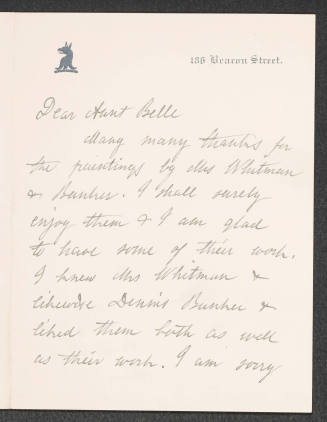 186 Beacon Street.
Dear Aunt Belle
Many many thanks for
the paintings by Mrs Whitman
& Bunker. I shall surely
enjoy them & I am glad
to have some of their work.
I knew Mrs Whitman &
likewise Dennis Bunker &
liked them both as well
as their work. I am sorry